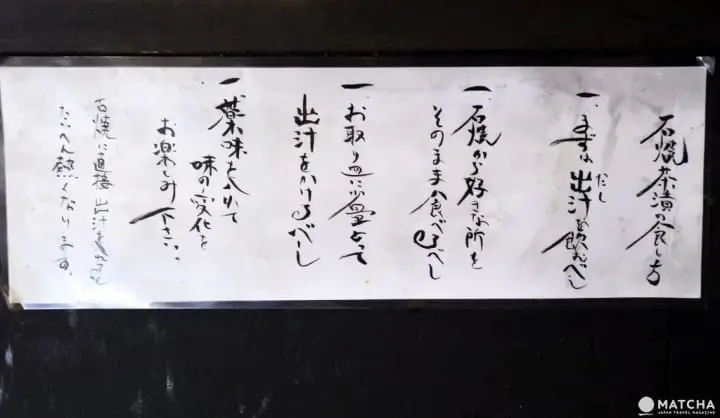 石焼茶漬の食し方
一、まずは出汁を飲むべし
だし
一、石焼から好きな所を
そのまま食べるべし
一、お取り皿に少量とって
出汁をかけるべし
一、薬味を入れて
味の変化を
お楽しみ下さい。
石焼に直接出汁を
たいへん熱くなります。
MATCHA
JAPAN TRAVEL MAGAZINE